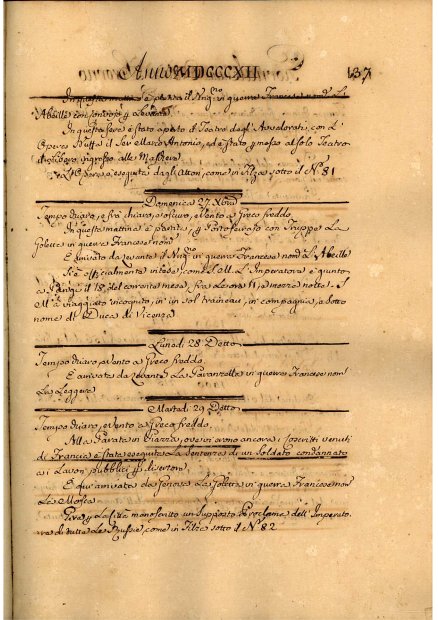 Anno MDCCCXII
137
In questa mattina è partito il Nug.º in guerra Francese nom.º L'
Abeille con
In questa sera è stato aperto il Teatro degl' Avvalorati, con L'
Opera Buffa il Ser Marco Antonio, ed è stato permesso al solo Teatro
L'Opera è eseguita dagli Attori, come in Filza sotto il N.º 81
Domenica 27 Xbre
Tempo Vario, e frà chiaro, e scuro, e Vento a Greco freddo.
In questa mattina è partita, p Portoferraio con Truppe La
Goletta in guerra Francese nom.
È arrivato da Levante il Nug.º in guerra Francese nom.º L'Abeille
Si è officialmente inteso, come S. M. L'Imperatore è giunto
a Parigi il 18. del corrente mese, frà Le ore 11, e mezza notte. S.
M. à viaggiato incognito, in un sol traineau, in compagnia, e sotto
nome di Duca di Vicenza
Lunedì 28 Detto
Tempo Vario e Vento a Greco freddo.
È arrivata da Levante La in guerra Francese nom.
La Leggera
Martedì 29 Detto
Tempo Vario, e Vento a Greco freddo.
Alla Parata in Piazza, ove vi erano ancora i Coscritti venuti
di Francia è stata eseguita La Sentenza di un Soldato condannato
a i Lavori pubblici p disertore.
È qui arrivata da Genova La Goletta in guerra Francese nom.
La Mosca
Gira p La Città manoscritto un supposto Proclama dell'Imperato
re di tutte Le Russie, come in Filza sotto il N.º 82